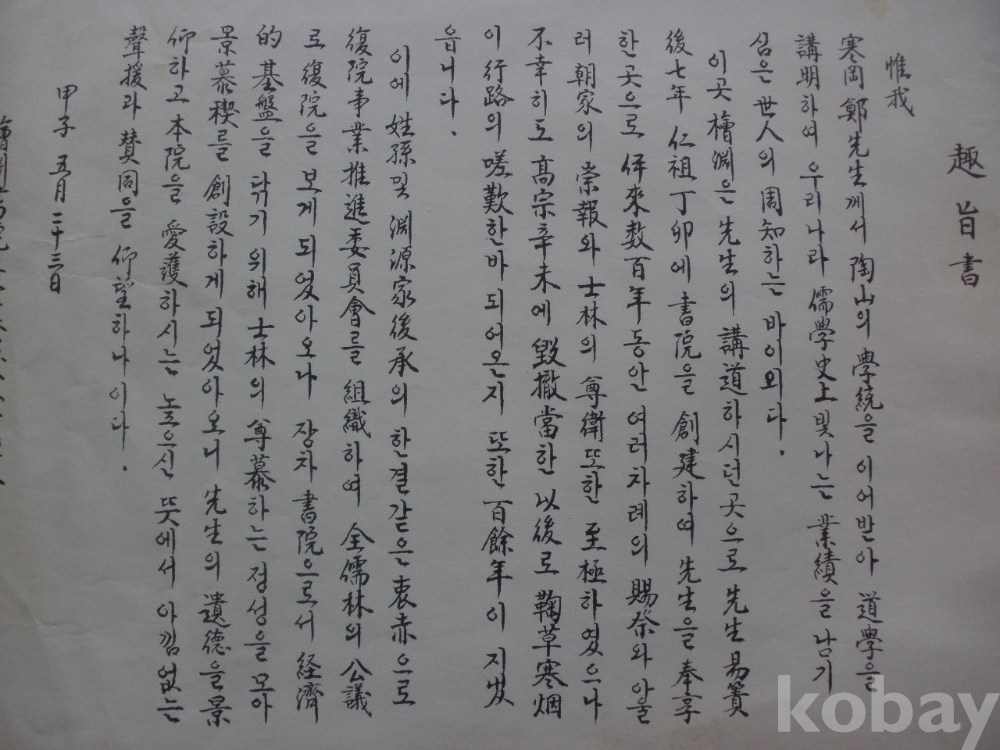 趣旨書
惟我
寒岡 鄭先生께서 陶山의 學統을 이어받아 道學을
講明하여 우리나라 儒學史上 빛나는 業績을 남기
심은 世人의 周知하는 바이외다.
이곳 檜淵은 先生의 講道하시던 곳으로 先生易簀
後七年 仁祖丁卯에 書院을 創建하여 先生을 奉享
한곳으로 伊來数百年동안 여러차례의 賜祭와 아울
러 朝家의 崇報와 士林의 尊衛또한 至極하였으나
不幸히도 高宗辛未에 毀撤當한 以後로 鞠草寒烟
이 行路의 嗟歎한바 되어온지 또한 百餘年이 지났
읍니다.
이에 姓孫및 淵源家後承의 한결같은 衷赤으로
復院事業推進委員會를 組織하여 全儒林의 公議
로 復院을 보게 되었아오나 장차 書院으로서 経濟
的 基盤을 닦기 위해 士林의 尊慕하는 정성을 모아
景慕稧를 創設하게 되었아오니 先生의 遺德을 景
仰하고 本院을 愛護하시는 높으신 뜻에서 아낌없는
聲援과 賛同을 仰望하나이다.
甲子 五月 二十三日